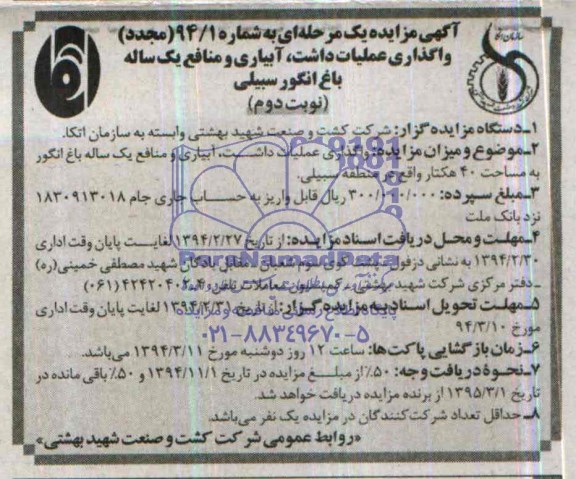 آگهی مزایده یک مرحله‌ای به شماره ۹۴/۱ (مجدد)
واگذاری عملیات داشت، آبیاری و منافع یک ساله
باغ انگور سبیلی
(نوبت دوم)
۱ـ دستگاه مزایده گزار: شرکت کشت و صنعت شهید بهشتی وابسته به سازمان اتکا.
۲ـ موضوع و میزان مزایده: واگذاری عملیات داشت، آبیاری و منافع یک ساله باغ انگور
به مساحت ۴۰ هکتار واقع در منطقه سبیلی.
۳ـ مبلغ سپرده: ۳۰۰/۰۰۰/۰۰۰ ریال قابل واریز به حساب جاری جام ۱۸۳۰۹۱۳۰۱۸
نزد بانک ملت
۴ـ مهلت و محل دریافت اسناد مزایده: از تاریخ ۱۳۹۴/۲/۲۷ لغایت پایان وقت اداری
۱۳۹۴/۲/۳۰ به نشانی دزفول سوم شعبان مقابل پادگان شهید مصطفی خمینی(ره)
ـ دفتر مرکزی شرکت شهید بهشتی ـ کمیسیون معاملات تلفن (۰۶۱)
۵ـ مهلت تحویل اسناد به مزایده گزار: از تاریخ ۱۳۹۴/۲/۳۱ لغایت پایان وقت اداری
مورخ ۹۴/۳/۱۰
۶ـ زمان بازگشایی پاکت‌ها: ساعت ۱۲ روز دوشنبه مورخ ۱۳۹۴/۳/۱۱ می‌باشد.
۷ـ نحوۀ دریافت وجه: ۵۰٪ از مبلغ مزایده در تاریخ ۱۳۹۴/۱۱/۱ و ۵۰٪ باقی مانده در
تاریخ ۱۳۹۵/۳/۱ از برنده مزایده دریافت خواهد شد.
۸ـ حداقل تعداد شرکت‌کنندگان در مزایده یک نفر می‌باشد.
«روابط عمومی شرکت کشت و صنعت شهید بهشتی»
ParsNamadData
پایگاه اطلاع رسانی مناقصه و مزایده
۰۲۱-۸۸۳۴۹۶۷۰-۵